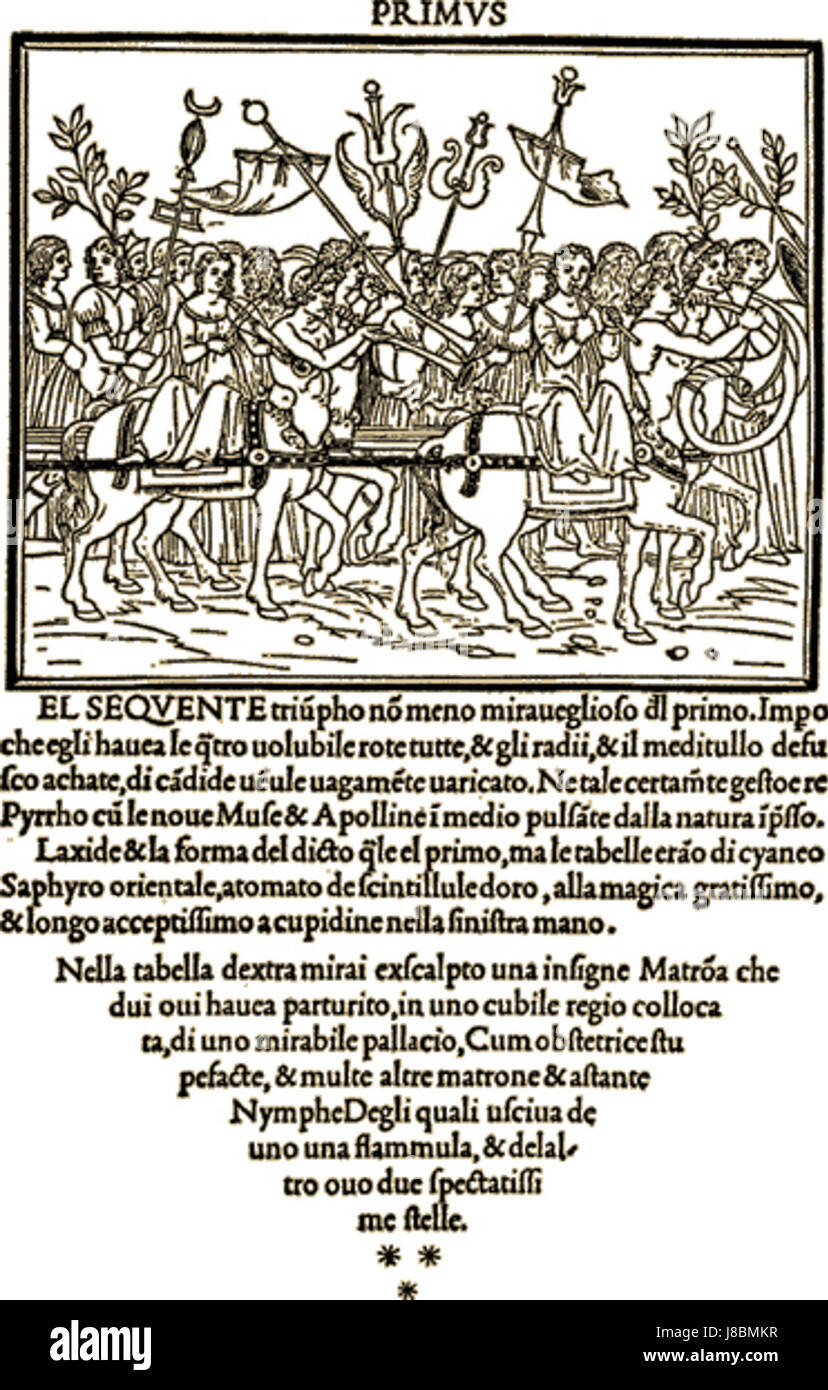 PRIMVS
EL SEQVENTE triũpho nõ meno miraueglioſo dl̃ primo. Impo
che egli hauea le q̃tro uolubile rote tutte, & gli radii, & il meditullo defu
ſco achate, di cãdide uẽule uagamẽte uaricato. Ne tale certam̃te geſtoe re
Pyrrho cũ le noue Muſe & Apolline ĩ medio pulſãte dalla natura ĩpſſo.
Laxide & la forma del dicto q̃le el primo, ma le tabelle erão di cyaneo
Saphyro orientale, atomato de ſcintillule doro, alla magica gratiſſimo,
& longo acceptiſſimo a cupidine nella ſiniſtra mano.
Nella tabella dextra mirai exſcalpto una inſigne Matrõa che
dui oui hauea parturito, in uno cubile regio colloca
ta, di uno mirabile pallacio, Cum obſtetrice ſtu
pefacte, & multe altre matrone & aſtante
Nymphe Degli quali uſciua de
uno una flammula, & delal-
tro ouo due ſpectatiſſi
me ſtelle.
* *
*
alamy
Image ID: J8BMKR
www.alamy.com